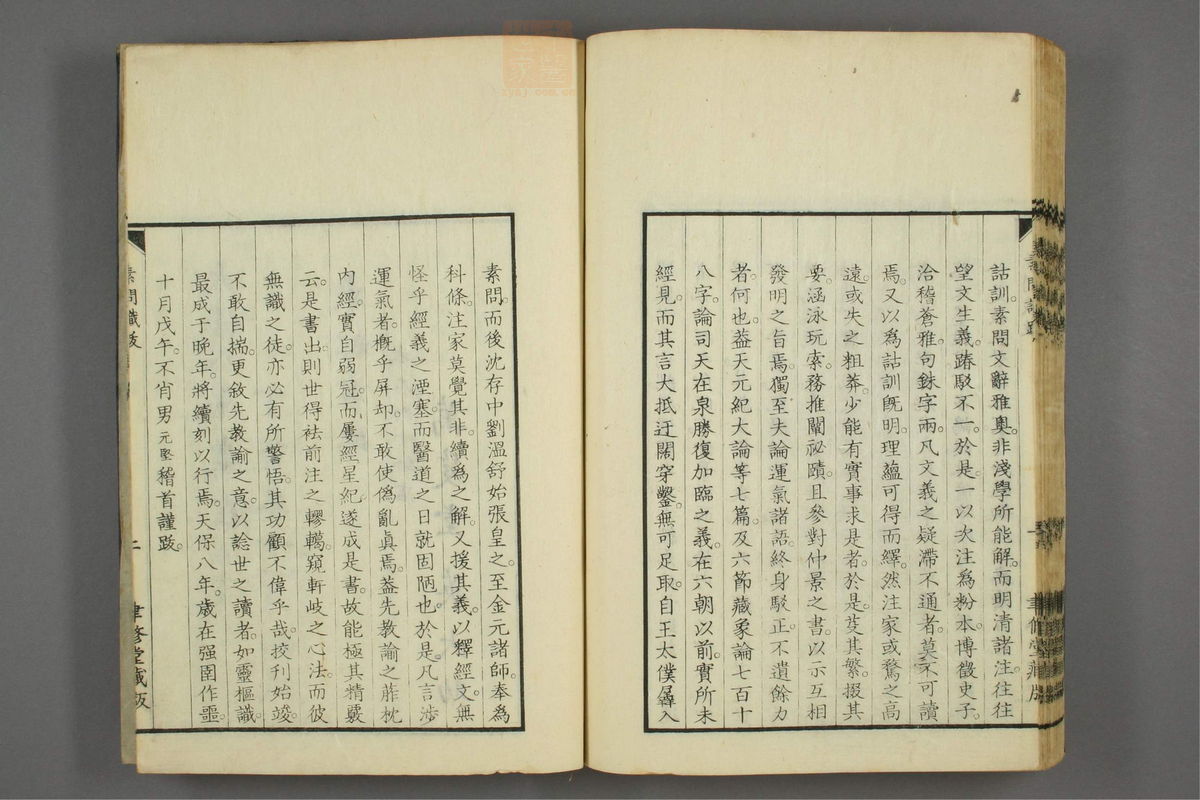 詁訓。素問文辭雅奧。非淺學所能解。而明清諸注。往往
望文生義。踳駁不一。於是一以次注爲粉本。博徵史子。
洽稽蒼雅。句銖字兩。凡文義之疑滯不通者。莫不可讀
焉。又以爲詁訓旣明。理蘊可得而繹。然注家或騖之高
遠。或失之粗莽。少能有實事求是者。於是芟其繁。掇其
要。涵泳玩索。務推闡祕賾。且參對仲景之書。以示互相
發明之旨焉。獨至夫論運氣諸語。終身駁正。不遺餘力
者。何也。蓋天元紀大論等七篇。及六節藏象論七百十
八字。論司天在泉勝復加臨之義。在六朝以前。實所未
經見。而其言大抵迂闊穿鑿。無可足取。自王太僕羼入
素問。而後沈存中劉溫舒始張皇之。至金元諸師。奉爲
科條。注家莫覺其非。續爲之解。又援其義。以釋經文。無
怪乎經義之湮塞。而醫道之日就固陋也。於是凡言涉
運氣者。槪乎屏却。不敢使僞亂眞焉。蓋先教諭之莋枕
內經。實自弱冠。而屢經星紀。遂成是書。故能極其精覈
云。是書出。則世得袪前注之轇轕。窺軒岐之心法。而彼
無識之徒。亦必有所警悟。其功顧不偉乎哉。挍刊始竣。
不敢自揣。更敘先教諭之意。以諗世之讀者。如靈樞識。
最成于晚年。將續刻以行焉。天保八年。歲在强圉作噩。
十月戊午。不肖男元堅稽首謹跋。
素問識跋
二
聿修堂藏版